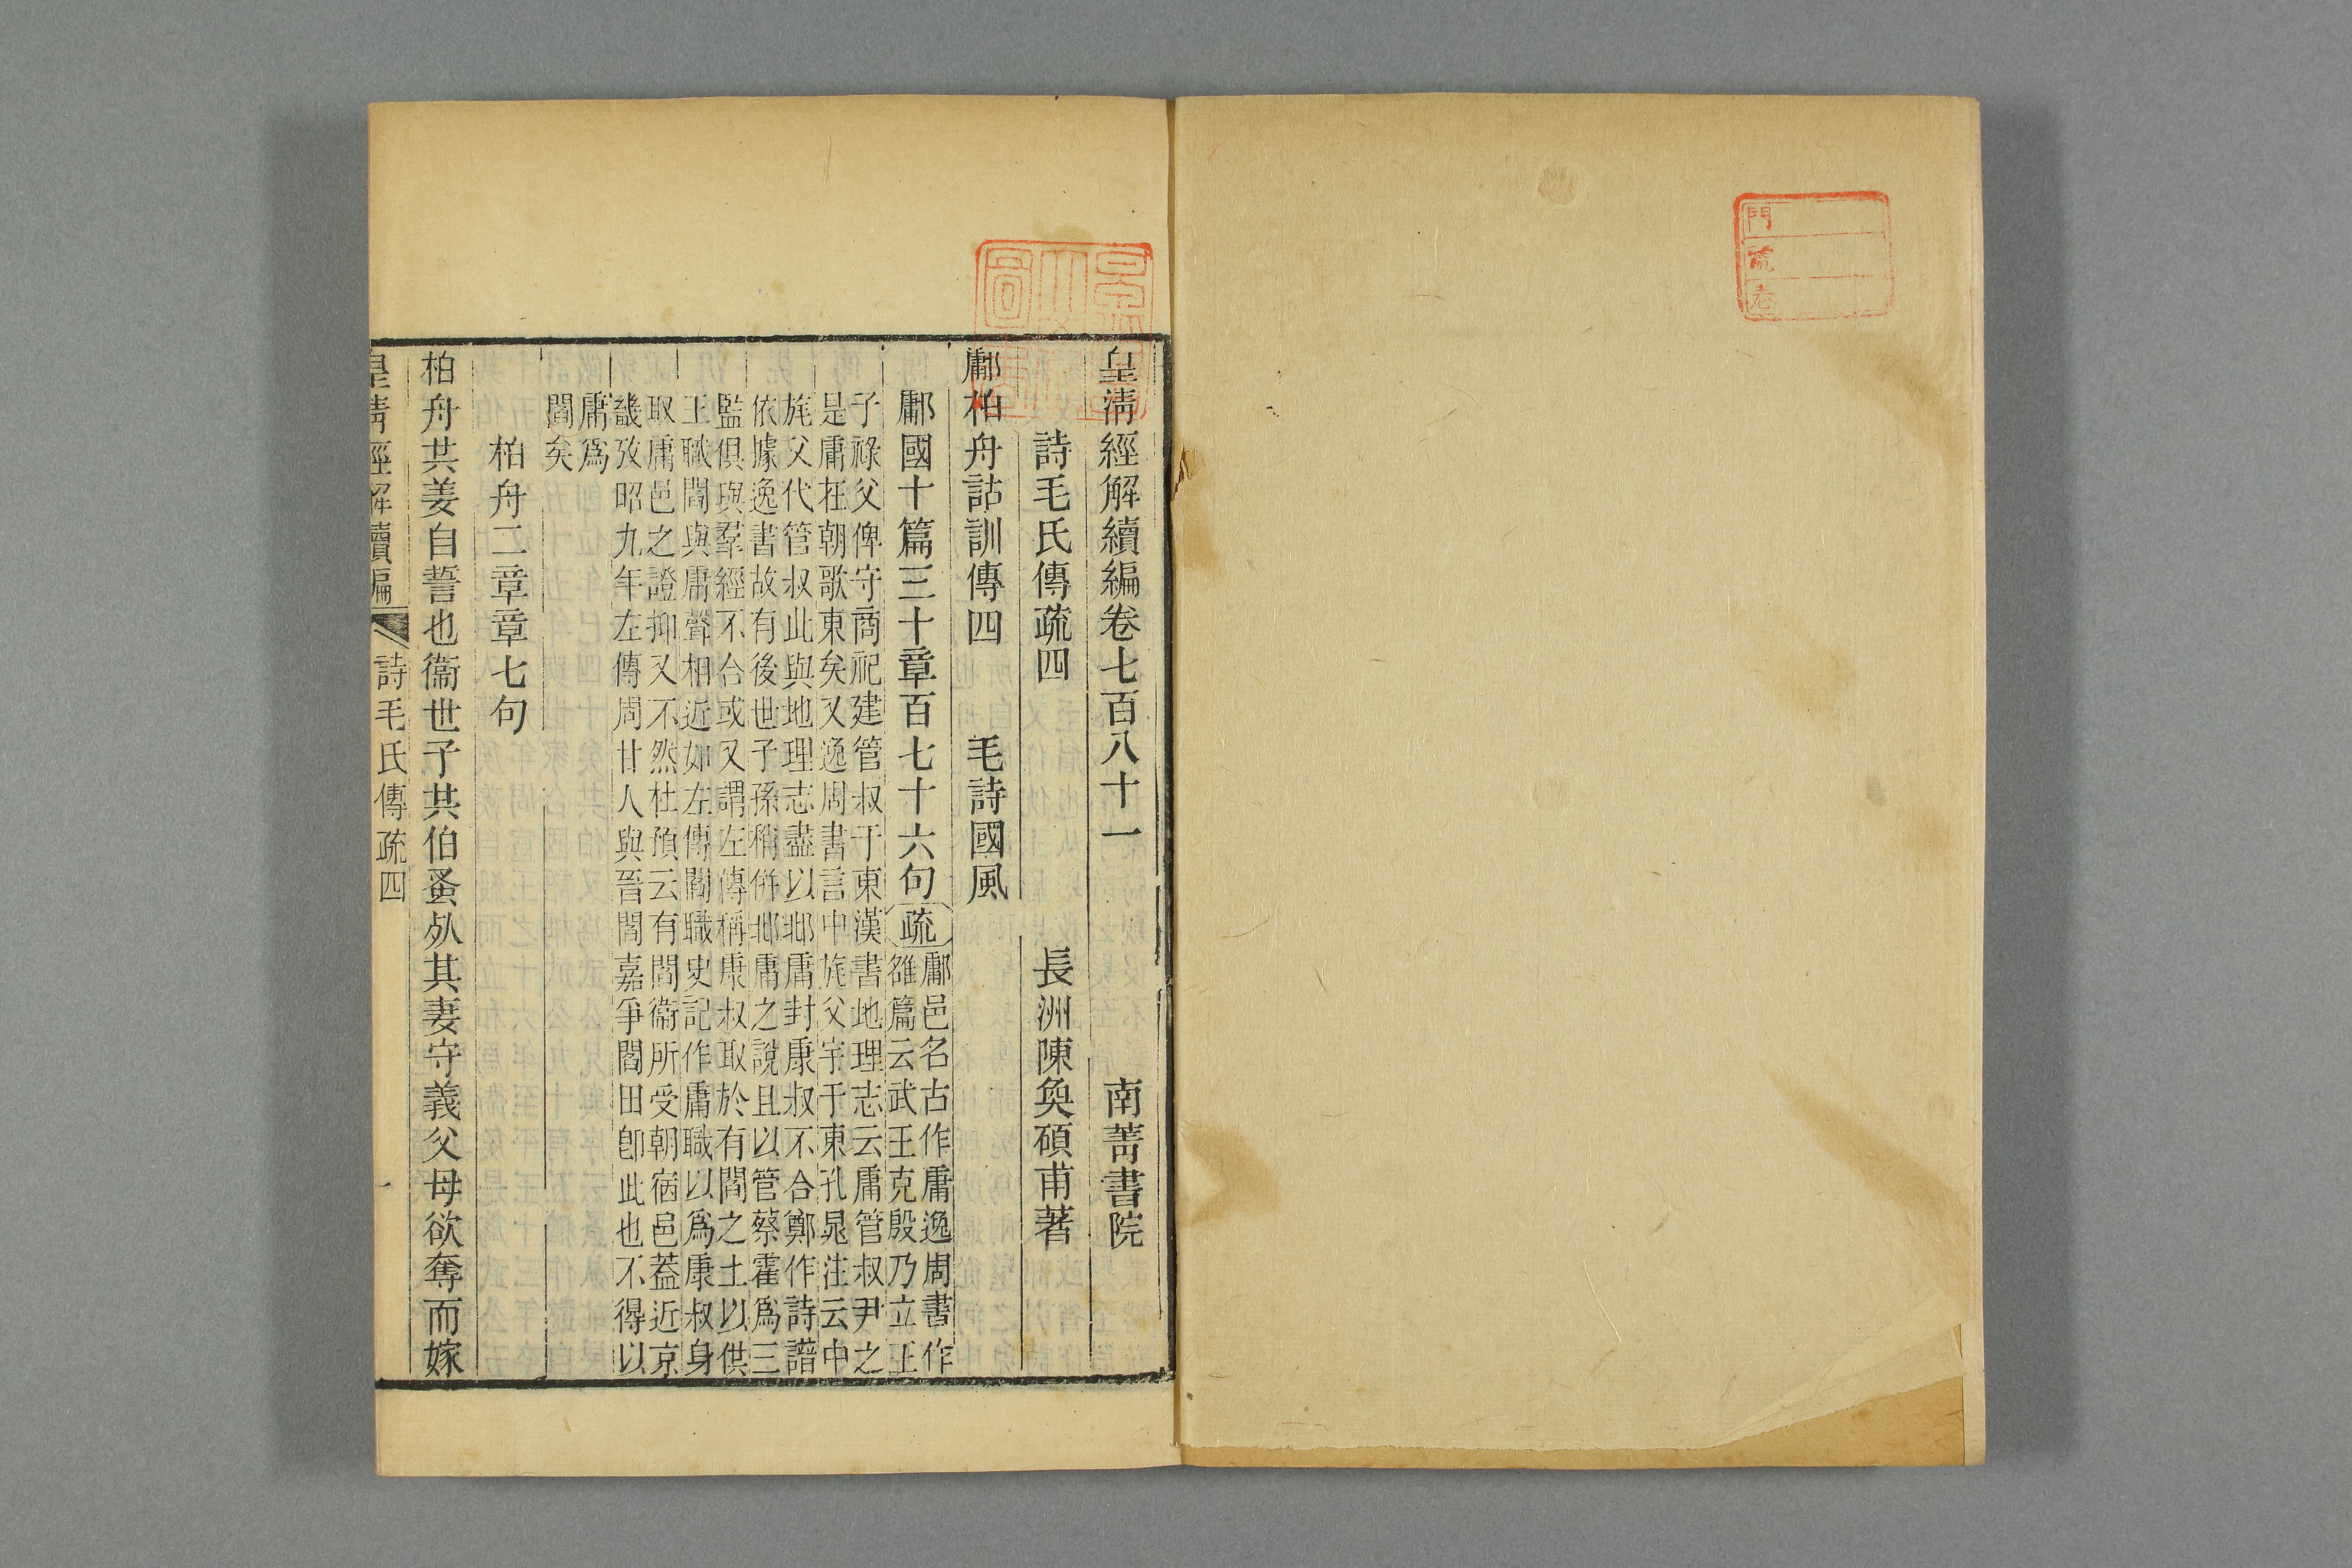 門
號
卷
皇清經解續編卷七百八十一 南菁書院
詩毛氏傳疏四 長洲陳奐碩甫著
鄘柏舟詁訓傳四 毛詩國風
鄘國十篇三十章百七十六句疏
鄘邑名古作庸逸周書作
雒篇云武王克殷乃立王
子祿父俾守商祀建管叔于東漢書地理志云庸管叔尹之
是庸在朝歌東矣又逸周書言中旄父宇于東孔晁注云中
旄父代管叔此與地理志盡以邶庸封康叔不合鄭作詩譜
依據逸書故有後世子孫稍併邶庸之說且以管蔡霍爲三
監俱與羣經不合或又謂左傳稱康叔取於有閻之土以供
王職閻與庸聲相近如左傳閻職史記作庸職以爲康叔身
取庸邑之證抑又不然杜預云有閻衞所受朝宿邑葢近京
畿攷昭九年左傳周甘人與晉閻嘉爭閻田卽此也不得以
庸爲
閻矣
柏舟二章章七句
柏舟共姜自誓也衞世子共伯蚤死其妻守義父母欲奪而嫁
皇清經解續編 詩毛氏傳疏四 一